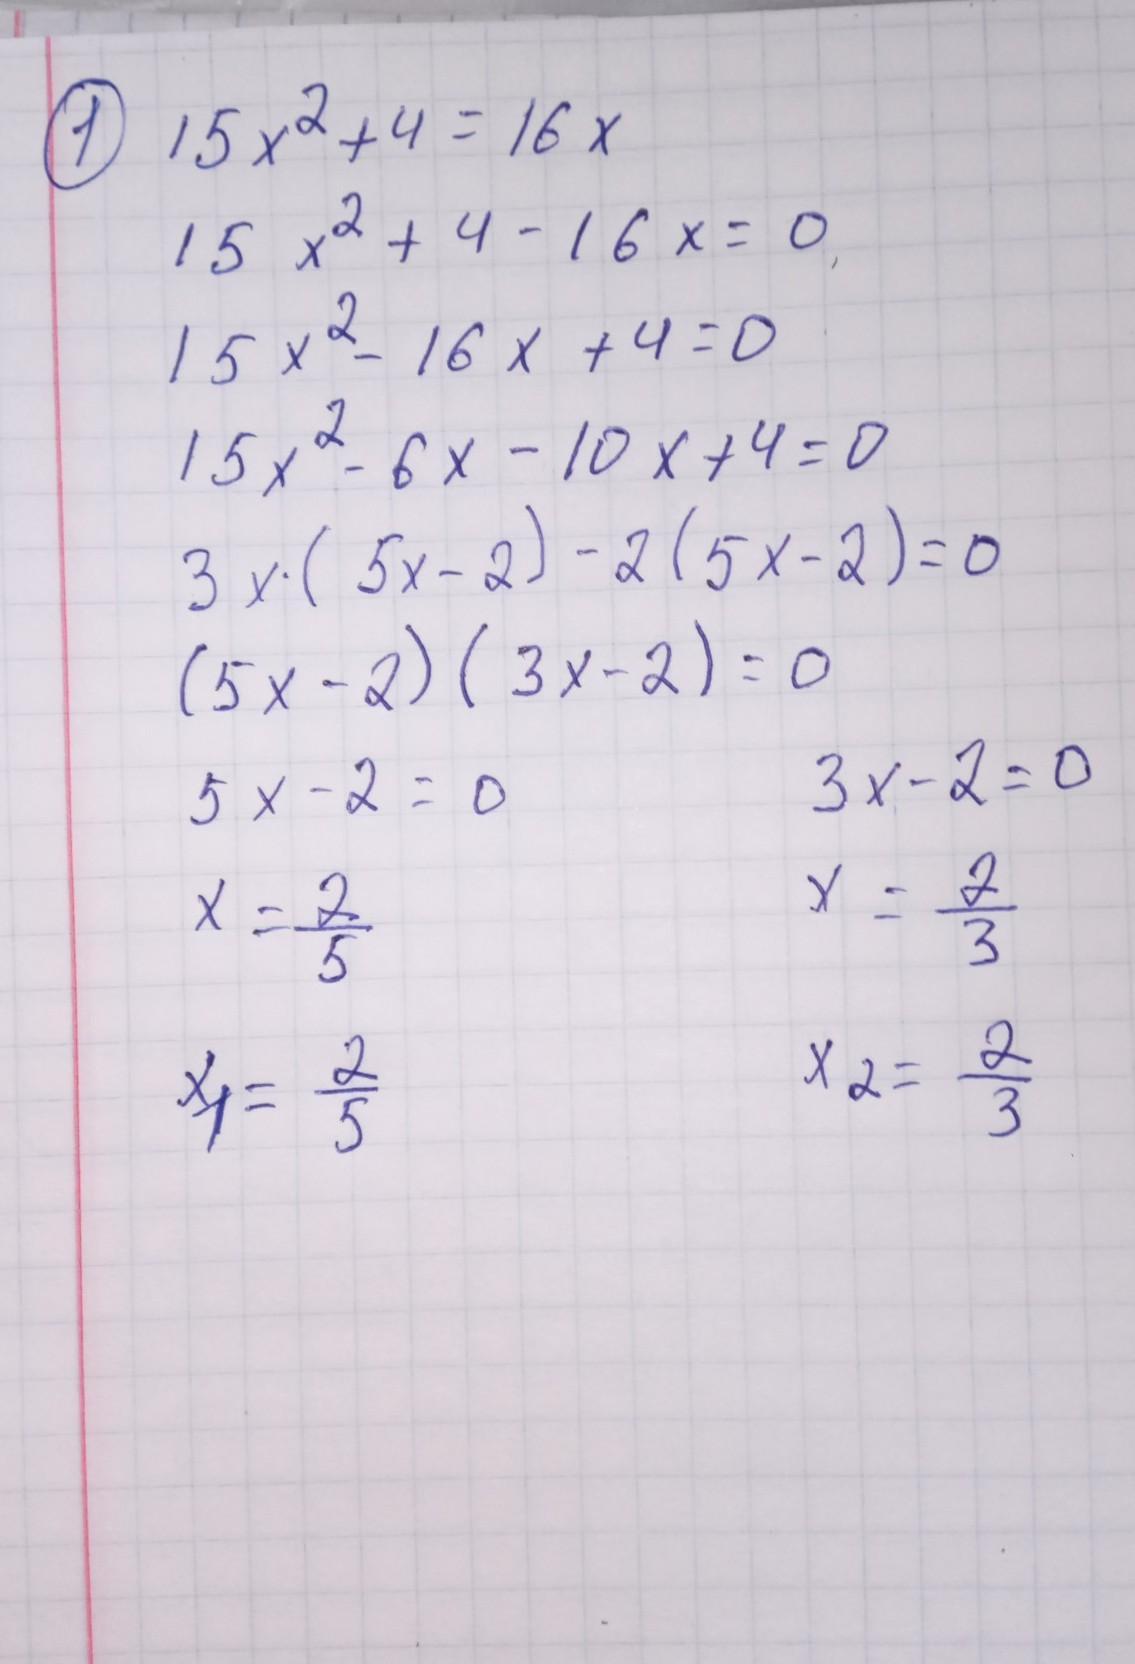 ① 15x²+4=16x
15x²+4-16x=0,
15x²-16x+4=0
15x²-6x-10x+4=0
3x·(5x-2)-2(5x-2)=0
(5x-2)(3x-2)=0
5x-2=0 3x-2=0
x=2/5 x=2/3
x₁=2/5 x₂=2/3